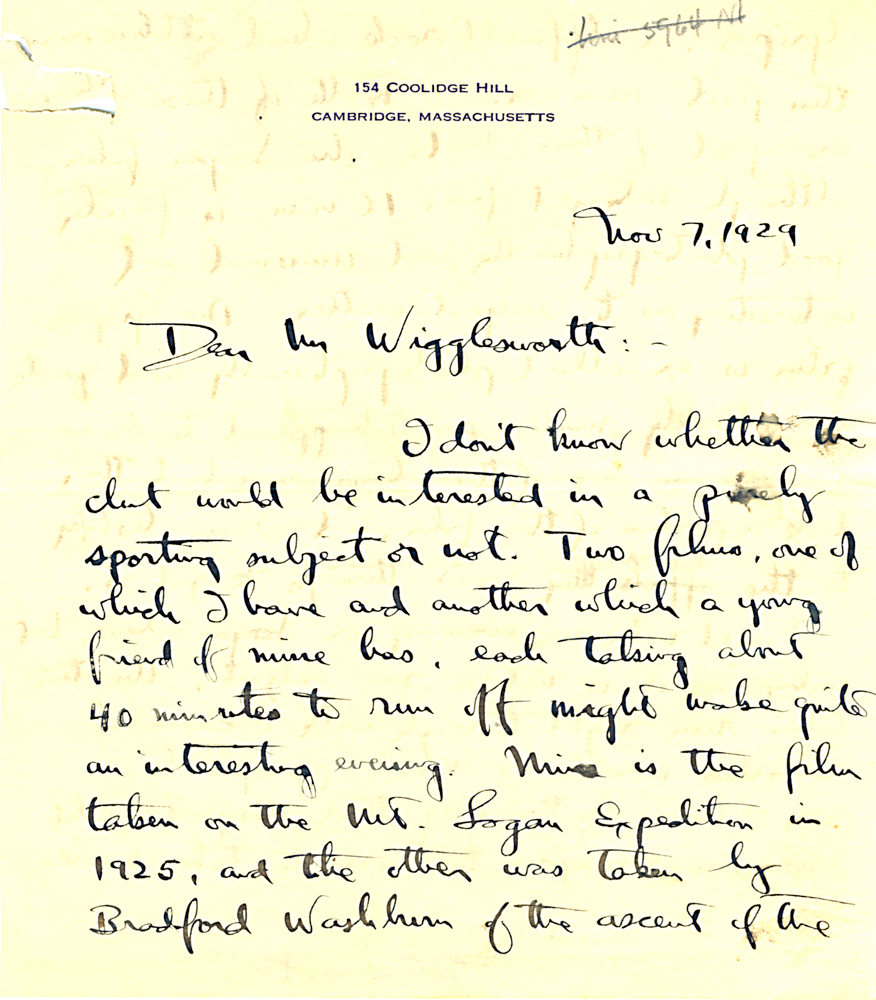 Uni 5964 Nt
154 COOLIDGE HILL
CAMBRIDGE, MASSACHUSETTS
Nov 7, 1929
Dear Mr Wigglesworth: -
I don't know whether the
club would be interested in a purely
sporting subject or not. Two films, one of
which I have and another which a young
friend of mine has, each taking about
40 minutes to run off might make quite
an interesting evening. Mine is the film
taken on the Mt. Logan Expedition in
1925, and the other was taken by
Bradford Washburn of the ascent of the